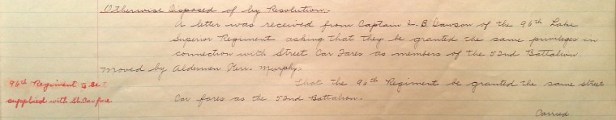 Otherwise Disposed of by Resolution.
A letter was received from Captain L. B. Dawson of the 96th Lake
Superior Regiment asking that they be granted the same privileges in
connection with Street Car Fares as members of the 52nd Battalion
Moved by Alderman Kerr. Murphy.
96th Regiment to be
That the 96th Regiment be granted the same street
supplied with St. Car fare
Car fares as the 52nd Battalion.
Carried